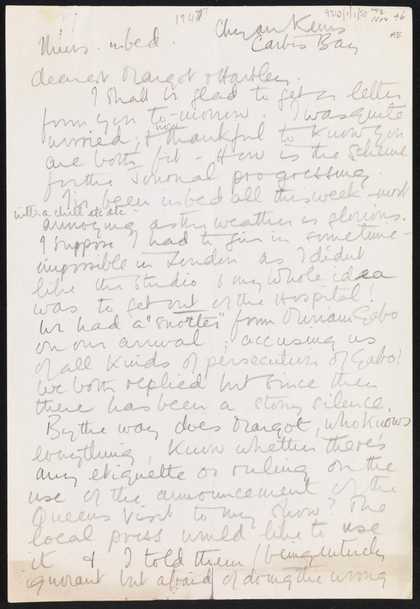 194
Chy an Kerris
Thurs. in bed. Carbis Bay
dearest Margot & Hartley.
I shall be glad to get a letter
from you to-morrow. I was quite
worried, & thankful to know you
are both fit - How is the scheme
for the Journal progressing.
I've been in bed all this week - most
with a chill etc etc.
annoying as the weather is glorious.
I suppose I had to give in sometime -
impossible in London as I didn't
like the studio & my whole idea
was to get out of the Hospital!
We had a "snorter" from Miriam Gabo
on our arrival, accusing us
of all kinds of persecution of Gabo!
We both replied but since then
there has been a stony silence.
By the way does Margot, who knows
everything, know whether there's
any etiquette or ruling on the
use of the announcement of the
Queens visit to my show? The
local press would like to use
it & I told them (being entirely
ignorant but afraid of doing the wrong